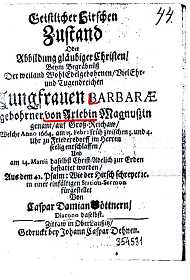 44.
Geistlicher Hirschen
Zustand
Oder
Abbildung gläubiger Christen/
Beym Begräbnüß
Der weiland WohlEdelgebohrnen/VielEhr-
und Tugendreichen
Jungfrauen BARBARÆ
gebohrner von Axlebin Magnußin
genant/auf Groß-Reichau/
Welche Anno 1664. am 15. Febr. früh zwischen 3. und 4.
Uhr zu Friedersdorff im Herren
selig entschlaffen/
Und
am 14. Martii daselbst Christ-Adelich zur Erden
bestattet worden/
Aus dem 42. Psalm: Wie der Hirsch schreyet ic.
in einer einfältigen Leichen-Sermon
fürgestellet
Von
Caspar Damian Böttnern/
Diacono daselbst.
Zittau in OberLausitz/
Gedruckt bey Johann Caspar Dehnen.
354531